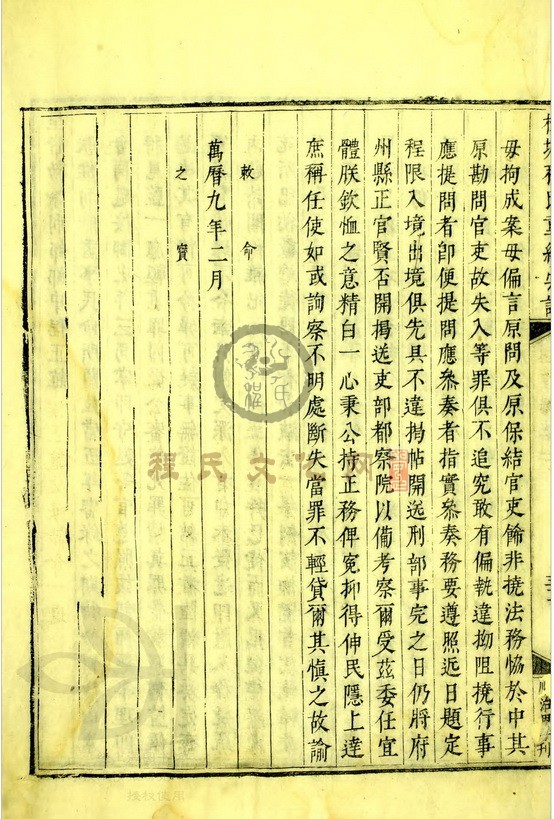 毋拘成案毋偏言原問及原保結官吏餙非撓法務恊於中其
原勘問官吏故失入等罪俱不追究敢有偏執違拗阻撓行事
應提問者卽便提問應叅奏者指實叅奏務要遵照近日題定
程限入境出境俱先具不違揭帖開送刑部事完之日仍將府
州縣正官賢否開揭送吏部都察院以備考察爾受茲委任宜
體朕欽恤之意精白一心秉公持正務俾寃抑得伸民隱上達
庶稱任使如或詢察不明處斷失當罪不輕貸爾其慎之故諭
敕命
萬曆九年二月
之寳
程氏文化网